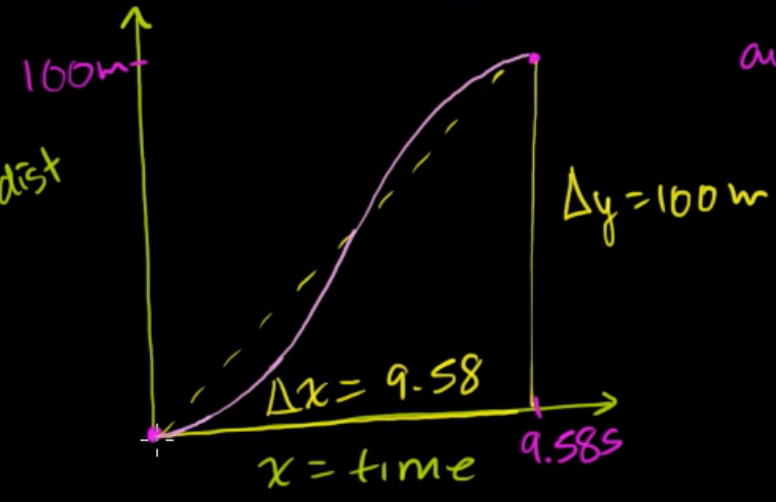 100m
dist
Δy = 100 m
Δx = 9.58
9.58s
x = time